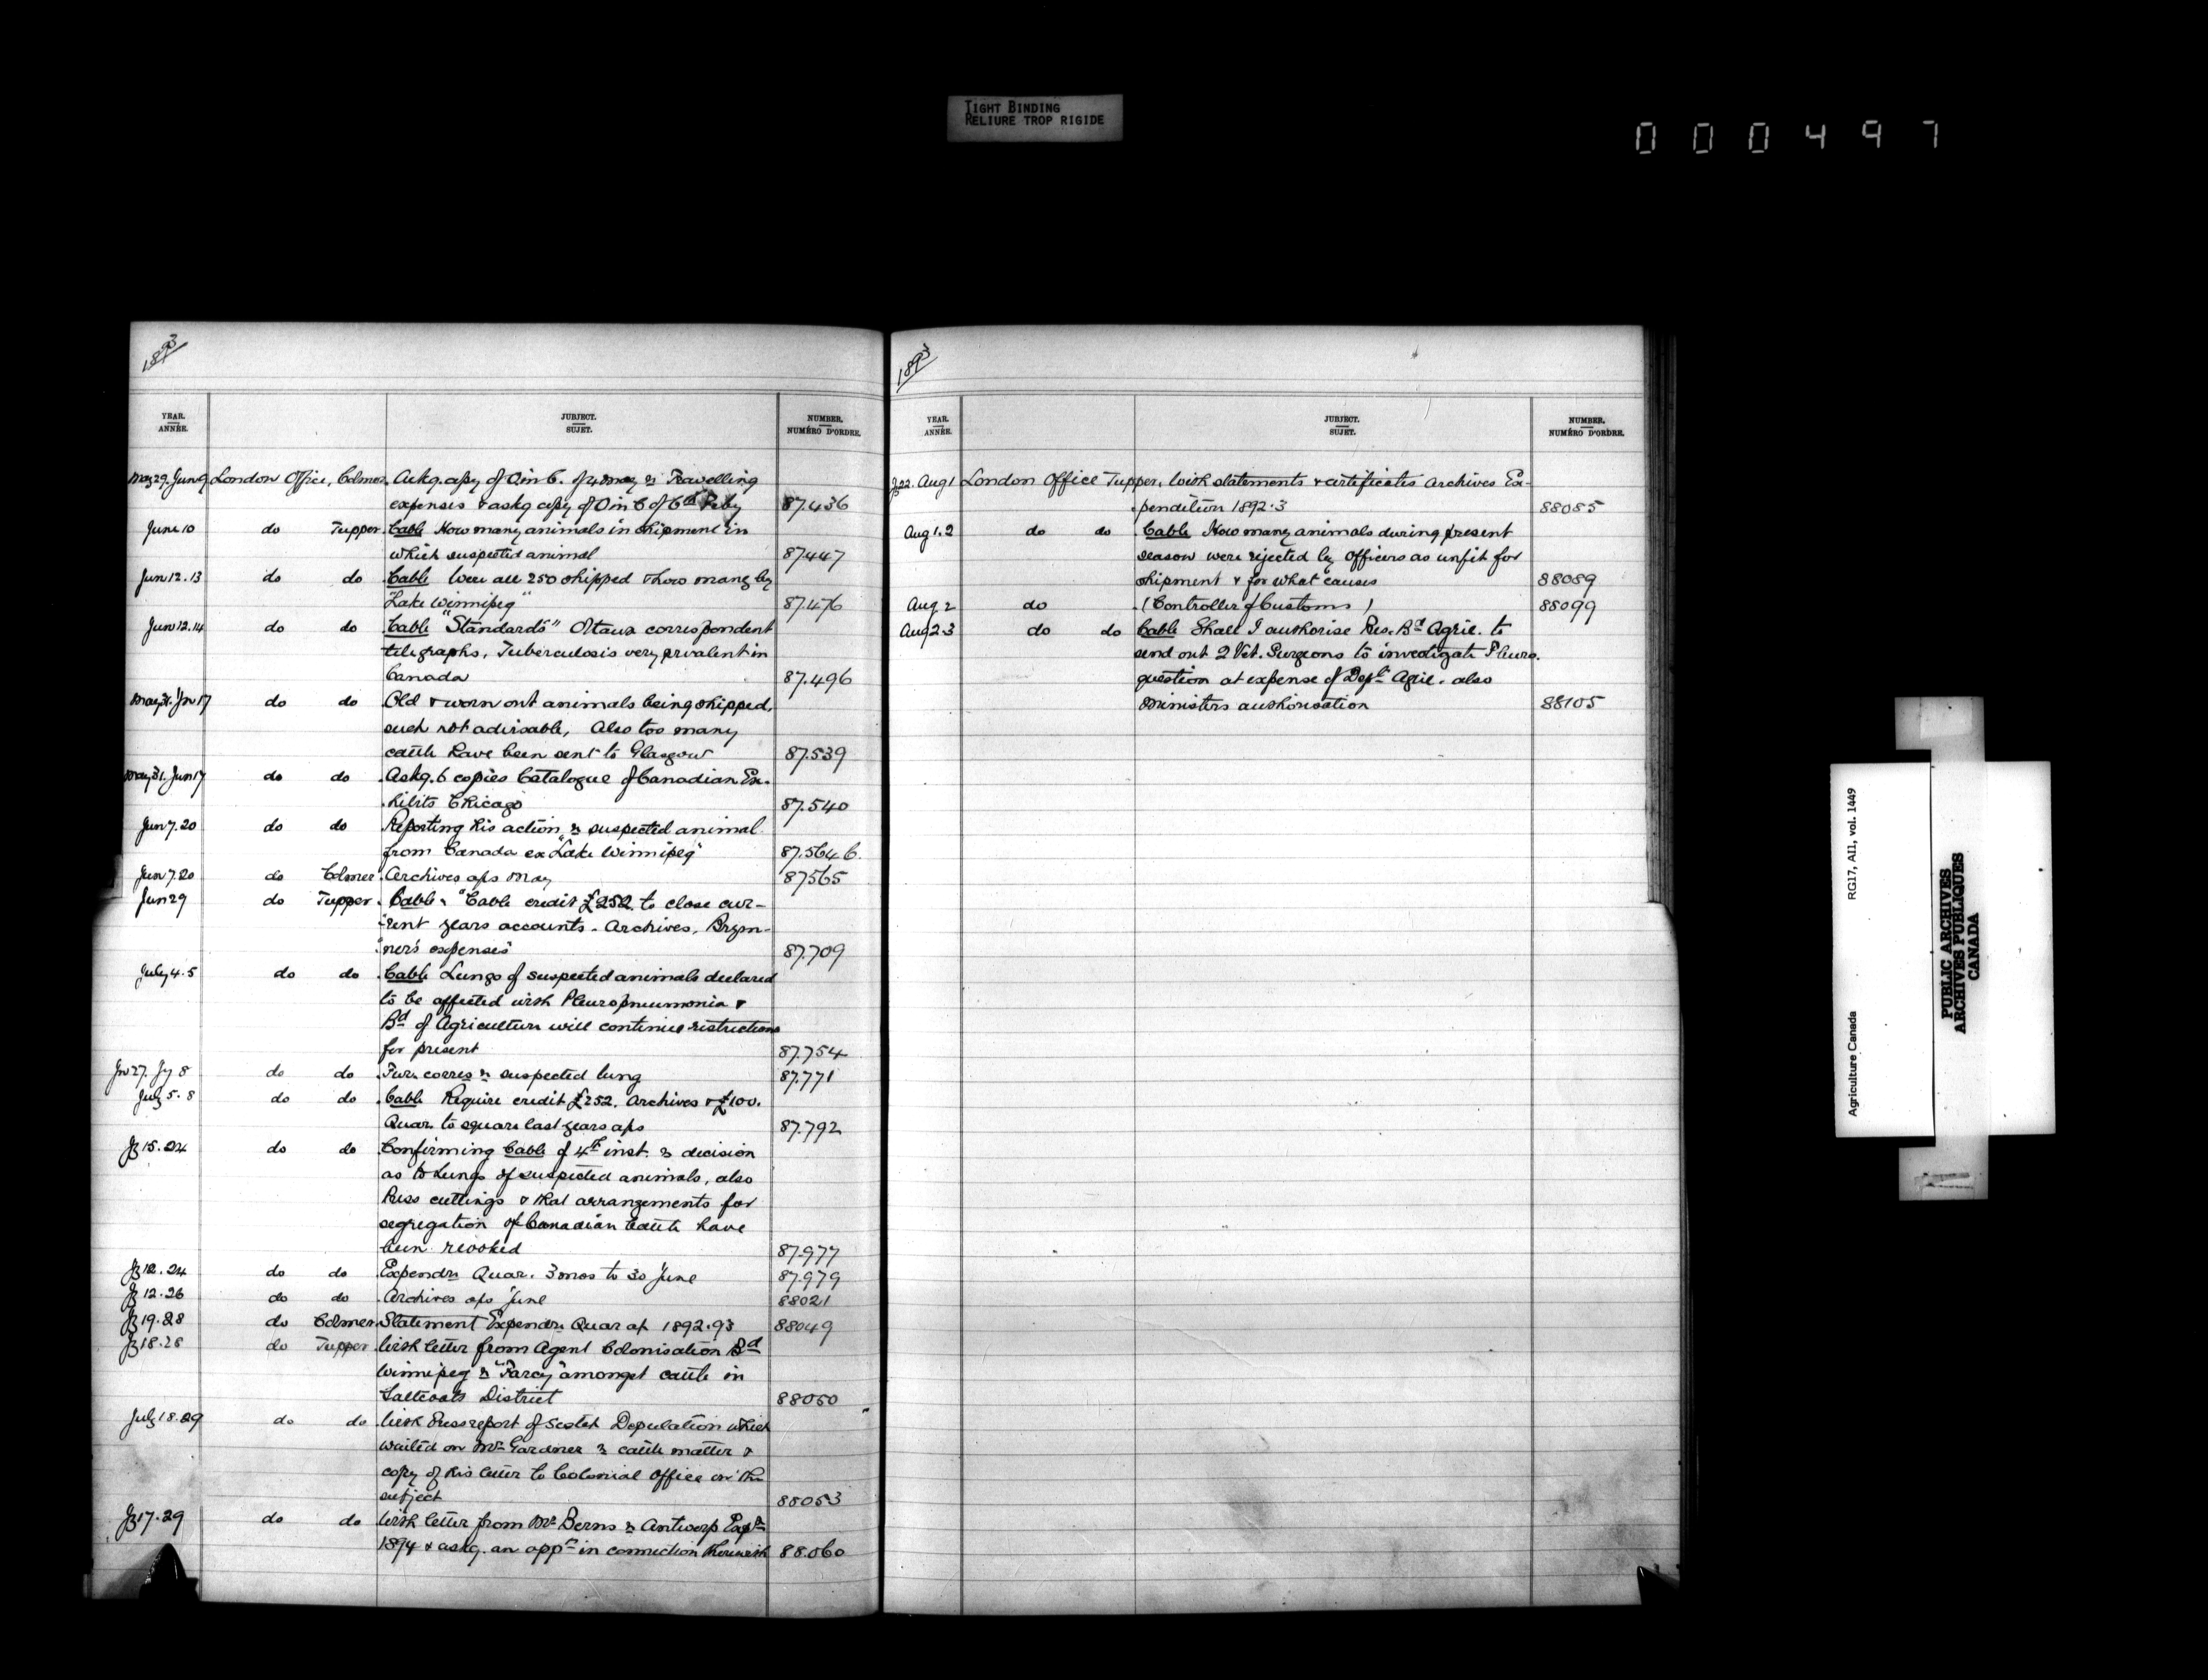 TIGHT BINDING
RELIURE TROP RIGIDE
000497
1893
YEAR. ANNÉE.
JUBJECT. SUJET.
NUMBER. NUMÉRO D'ORDRE.
May 29. Jun 9 London Office, Colmer. Askg. copy of O in C. of 4 May re Travelling
expenses & askg copy of O in C of 6th Feby 87.436
June 10 do Tupper. Cable How many animals in shipment in
which suspected animal 87447
Jun 12.13 do do Cable Were all 250 shipped & how many by
"Lake Winnipeg" 87.476
Jun 12.14 do do Cable "Standards" Ottawa correspondent
telegraphs, Tuberculosis very prvalent in
Canada 87.496
May 31. Jun 17 do do Old & worn out animals being shipped,
such not advisable, Also too many
cattle have been sent to Glasgow 87.539
May 31. Jun 17 do do Askg. 6 copies Catalogue of Canadian Ex-
hibits Chicago 87.540
Jun 7.20 do do Reporting his action re suspected animal
from Canada ex "Lake Winnipeg" 87.564 b.
Jun 7.20 do Colmer Archives a/cs May 87565
Jun 29 do Tupper. Cable "Cable credit £252 to close cur-
rent years accounts. Archives, Brym-
ner's expenses" 87.709
July 4.5 do do Cable Lungs of suspected animals declared
to be affected with Pleuropneumonia &
Bd of Agriculture will continue restrictions
for present 87.754
Jn 27. Jy 8 do do Fur. corres re suspected lung 87.771
July 5.8 do do Cable Require credit £252. Archives & £100.
Quar. to square last years a/cs 87.792
Jy 15.24 do do Confirming Cable of 4th inst. re decision
as to Lungs of suspected animals, also
Press cuttings & that arrangements for
segregation of Canadian Cattle have
been revoked 87.977
Jy 12.24 do do Expendre Quar. 3 mos to 30 June 87.979
Jy 12.26 do do Archives a/cs June 88021
Jy 19.28 do Colmer Statement Expendre Quar a/c 1892.93 88049
Jy 18.28 do Tupper With letter from Agent Colonisation Bd
Winnipeg re "Farcy" amongst cattle in
Saltcoats District 88050
July 18.29 do do With Press report of Scotch Deputation which
waited on Mr Gardner re cattle matter &
copy of his letter to Colonial Office on the
subject 88053
Jy 17.29 do do With letter from Mr Berns re Antwerp Expn
1894 & askg. an appn in connection therewith 88.060
1893
YEAR. ANNÉE.
JUBJECT. SUJET.
NUMBER. NUMÉRO D'ORDRE.
Jy 22. Aug 1 London Office Tupper. With statements & certificates Archives Ex-
penditure 1892.3 88085
Aug 1.2 do do Cable How many animals during present
season were rejected by Officers as unfit for
shipment & for what causes 88089
Aug 2 do (Controller of Customs) 88099
Aug 2.3 do do Cable Shall I authorise Pres. Bd Agric. to
send out 2 Vet. Surgeons to investigate Pleuro.
question at expense of Dept Agric. also
Ministers authorisation 88105
Agriculture Canada RG17, AII, vol. 1449
PUBLIC ARCHIVES
ARCHIVES PUBLIQUES
CANADA